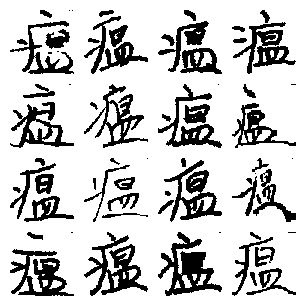 瘟瘟瘟瘟
瘟瘟瘟瘟
瘟瘟瘟瘟
瘟瘟瘟瘟